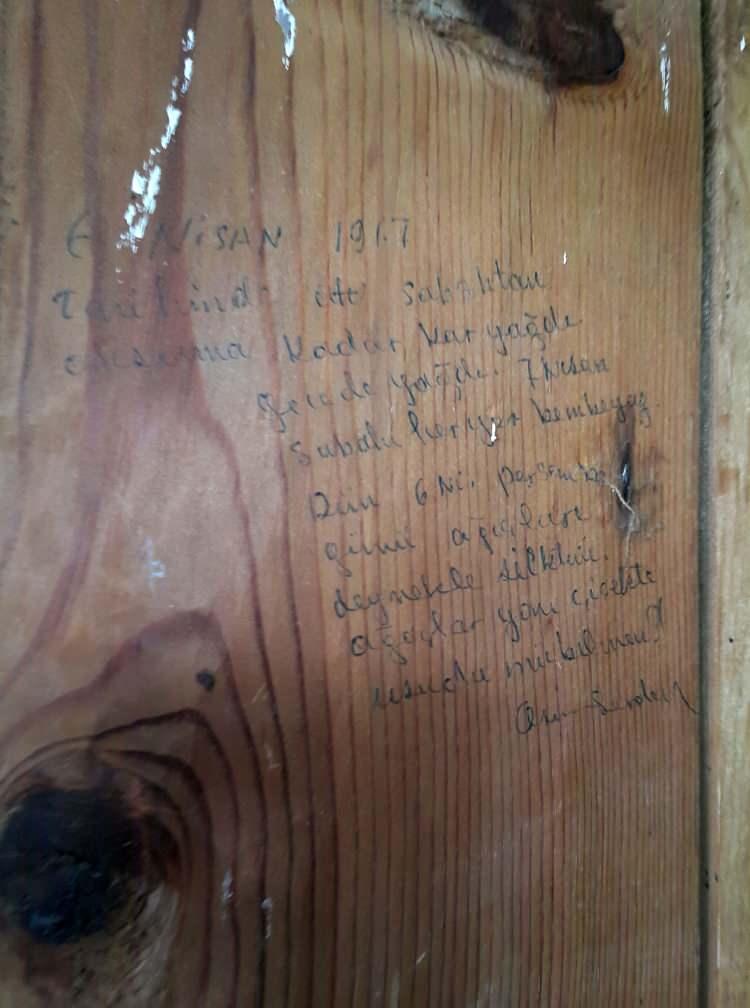 6 NİSAN 1917
Tarihinde sabahtan
akşama kadar kar yağdı
gecede yağdı. 7 Nisan
Sabahı heryer bembeyaz.
Dün 6 Ni. perşembe
günü ağaçları
deynekle silktim.
ağaçlar yarı çiçekte